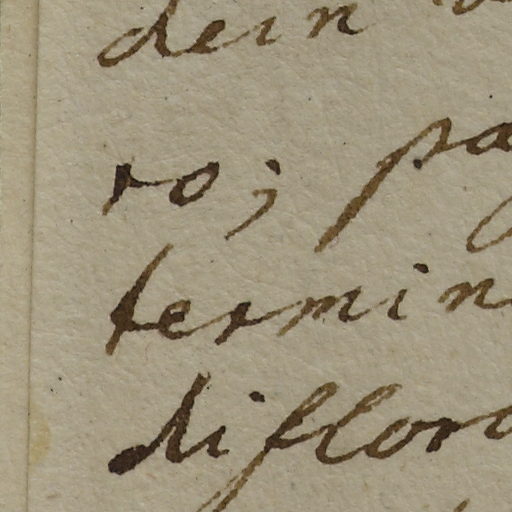 dein
ro; pa
termin
disloro